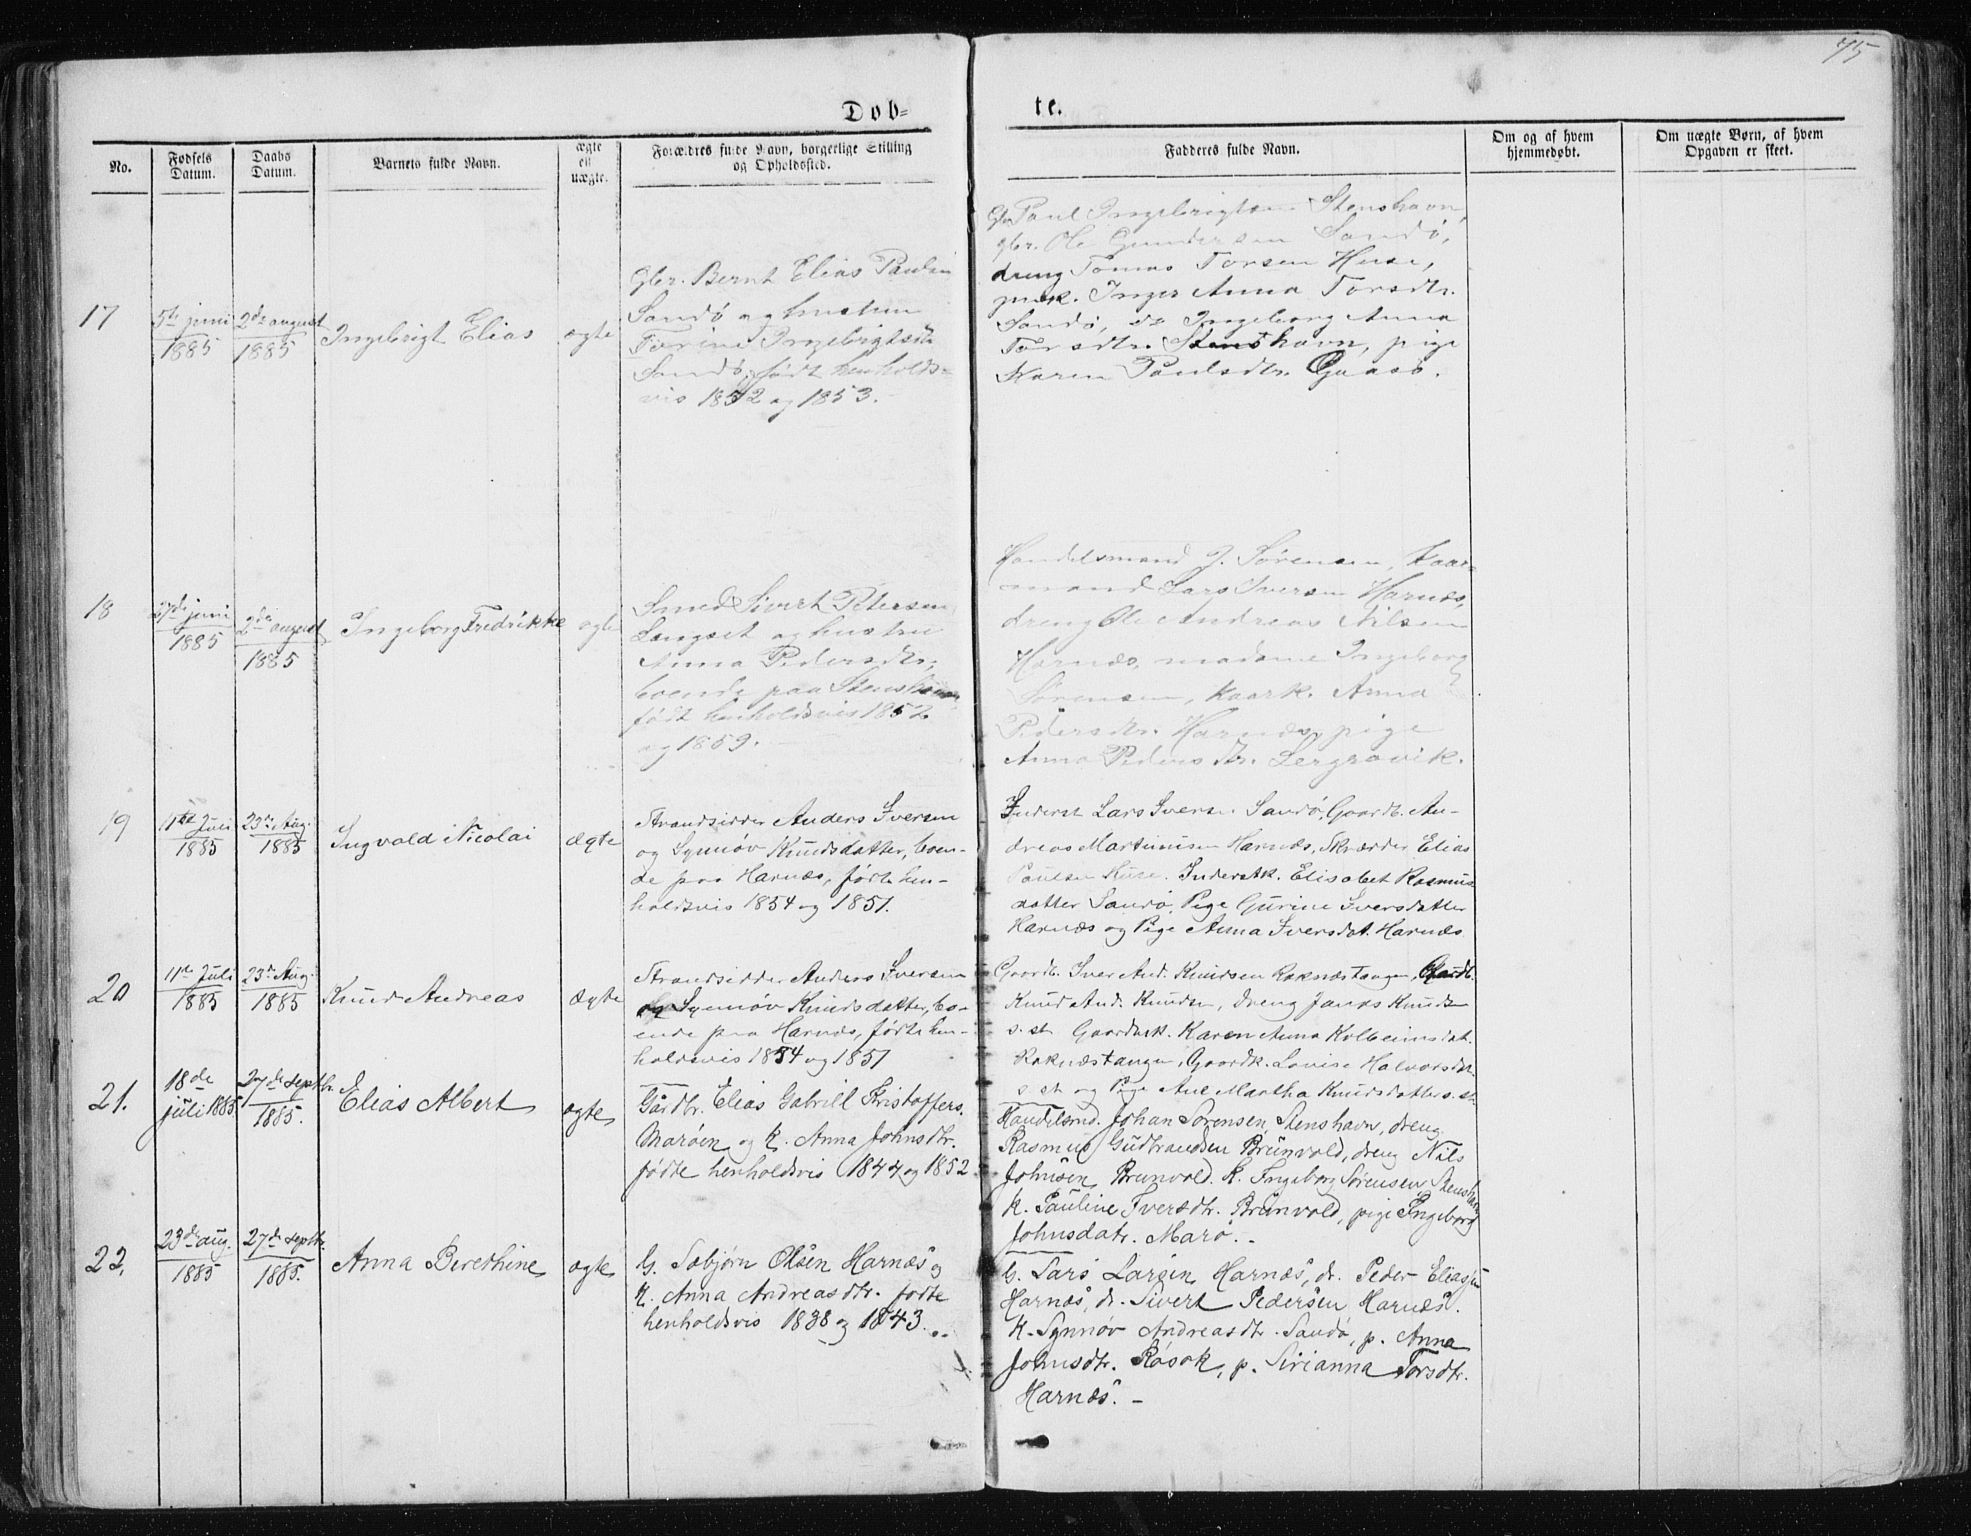 75
Døb=
te.
No.
Fødsels Datum.
Daabs Datum.
Barnets fulde Navn.
ægte ell uægte.
Forældres fulde Navn, borgerlige Stilling og Opholdssted.
Fadderes fulde Navn.
Om og af hvem hjemmedøbt.
Om uægte Børn, af hvem Opgaven er skeet.
17
5te juni
1885
2den august
1885
Ingebrigt Elias
ægte
Gbr. Bernt Elias Paulsen
Sandø og hustru
Ingebrigtsdtr
Sandø, født henholds-
vis 1852 og 1853.
Gbr Paul Ingebrigtsen Stenshavn,
gbr. Ole Gundersen Sandø,
dreng Tomas Torsen Huse,
Inger Anna Torsdtr.
Sandø, Ingeborg Anna
Torsdtr. Stenshavn, pige
Karen Paulsdtr. Gaasø.
18
27de juni
1885
2den august
1885
Ingeborg Fredrikke
ægte
Smed Sivert Petersen
Langset og hustru
Anna Pedersdtr,
boende paa Stenshavn
født henholdsvis 1852
og 1859.
Handelsmand J. Sørensen, kaar-
mand Lars Iversen Harnæs,
dreng Ole Andreas Nilsen
Harnæs, madame Ingeborg
Sørensen, kaark. Anna
Pedersdtr. Harnæs, pige
Anna Pedersdtr. Lergrovik.
19
11te Juli
1885
23de Aug.
1885
Ingvald Nicolai
ægte
Strandsidder Anders Iversen
og Synnøv Knudsdatter, boen-
de paa Harnæs, født hen-
holdsvis 1854 og 1851.
Inderst Lars Iversen Sandø, Gaardb. An-
dreas Martinusen Harnæs, Skrædder Elias
Paulsen Huse. Inderstk. Elisabet Rasmus
datter Sandø, Pige Gurine Iversdatter
Harnæs og Pige Anna Iversdat. Harnæs
20
11te Juli
1885
23de Aug.
1885
Knud Andreas
ægte
Strandsidder Anders Iversen
og Synnøv Knudsdatter, bo-
ende paa Harnæs, født hen-
holdsvis 1854 og 1851
Gaardb. Iver And. Knudsen Raknæstangen, Gaardb.
Knud And. Knudsen, Dreng Janas Knudsen
s. st. Gaardbk. Karen Anna Kolbeinsdat.
Raknæstangen, Gaardk. Lovise Halvorsdat.
s. st og Pige Ane Martha Knudsdatter s. st.
21.
18de
juli 1885
27de septbr.
1885.
Elias Albert
ægte
Gårdbr. Elias Gabriel Kristoffers.
Marøen og k. Anna Johnsdtr.
fødte henholdsvis 1844 og 1852
Handelsmd. Johan Sørensen, Stenshavn, dreng
Rasmus Gudbrandsen Brunvold, dreng Nils
Johnsen Brunvold. k. Ingeborg Sørensen Stenshavn
k. Pauline Iversdtr. Brunvold, pige Ingeborg
Johnsdatr. Marø. -
22.
23de aug.
1885
27de septbr.
1885.
Anna Berethine
ægte
G. Sæbjørn Olsen Harnæs og
k. Anna Andreasdtr. fødte
henholdsvis 1838 og 1843.
G. Lars Larsen Harnæs, dr. Peder Eliasen
Harnæs, dr. Sivert Pedersen Harnæs.
k. Synnøv Andreasdtr. Sandø, p. Anna
Johnsdtr. Røsok, p. Sirianna Torsdtr.
Harnæs. -